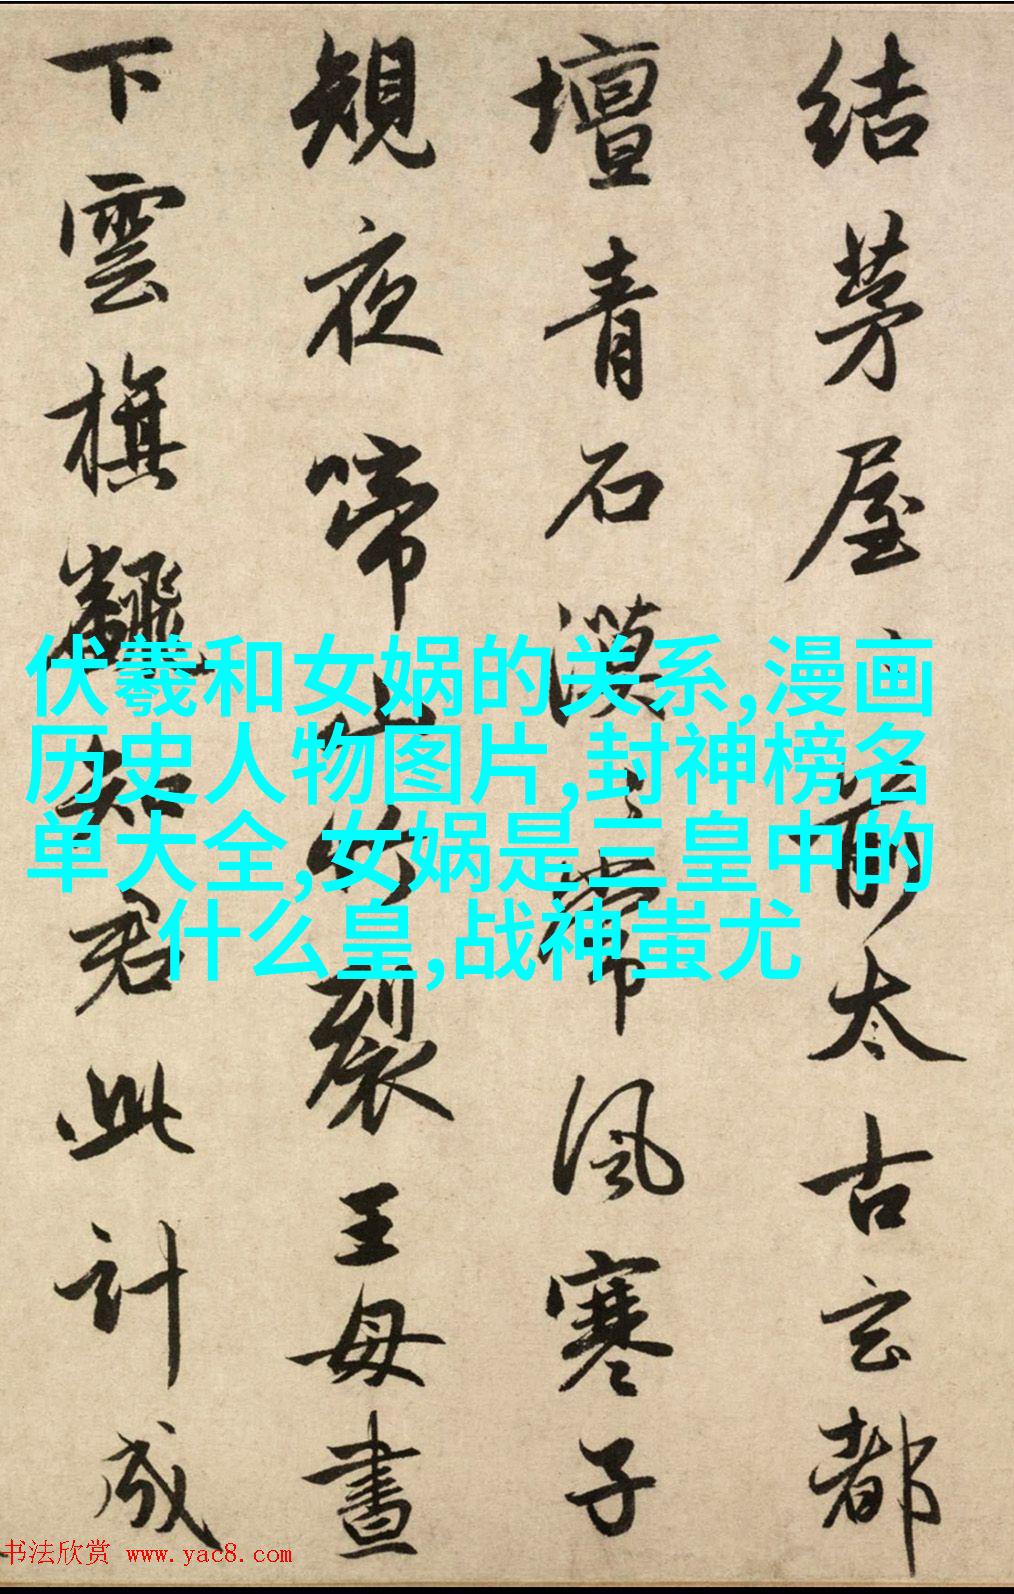 結茅屋〻前太古玄都
壇青石漠〻常風寒子
規夜啼山竹裂王母晝
下雲旗飜知君此計成
伏羲和女娲的关系,漫画
历史人物图片,封神榜名
单大全,女娲是三皇中的
什么皇,战神蚩尤
书法欣赏 www.yac8.com